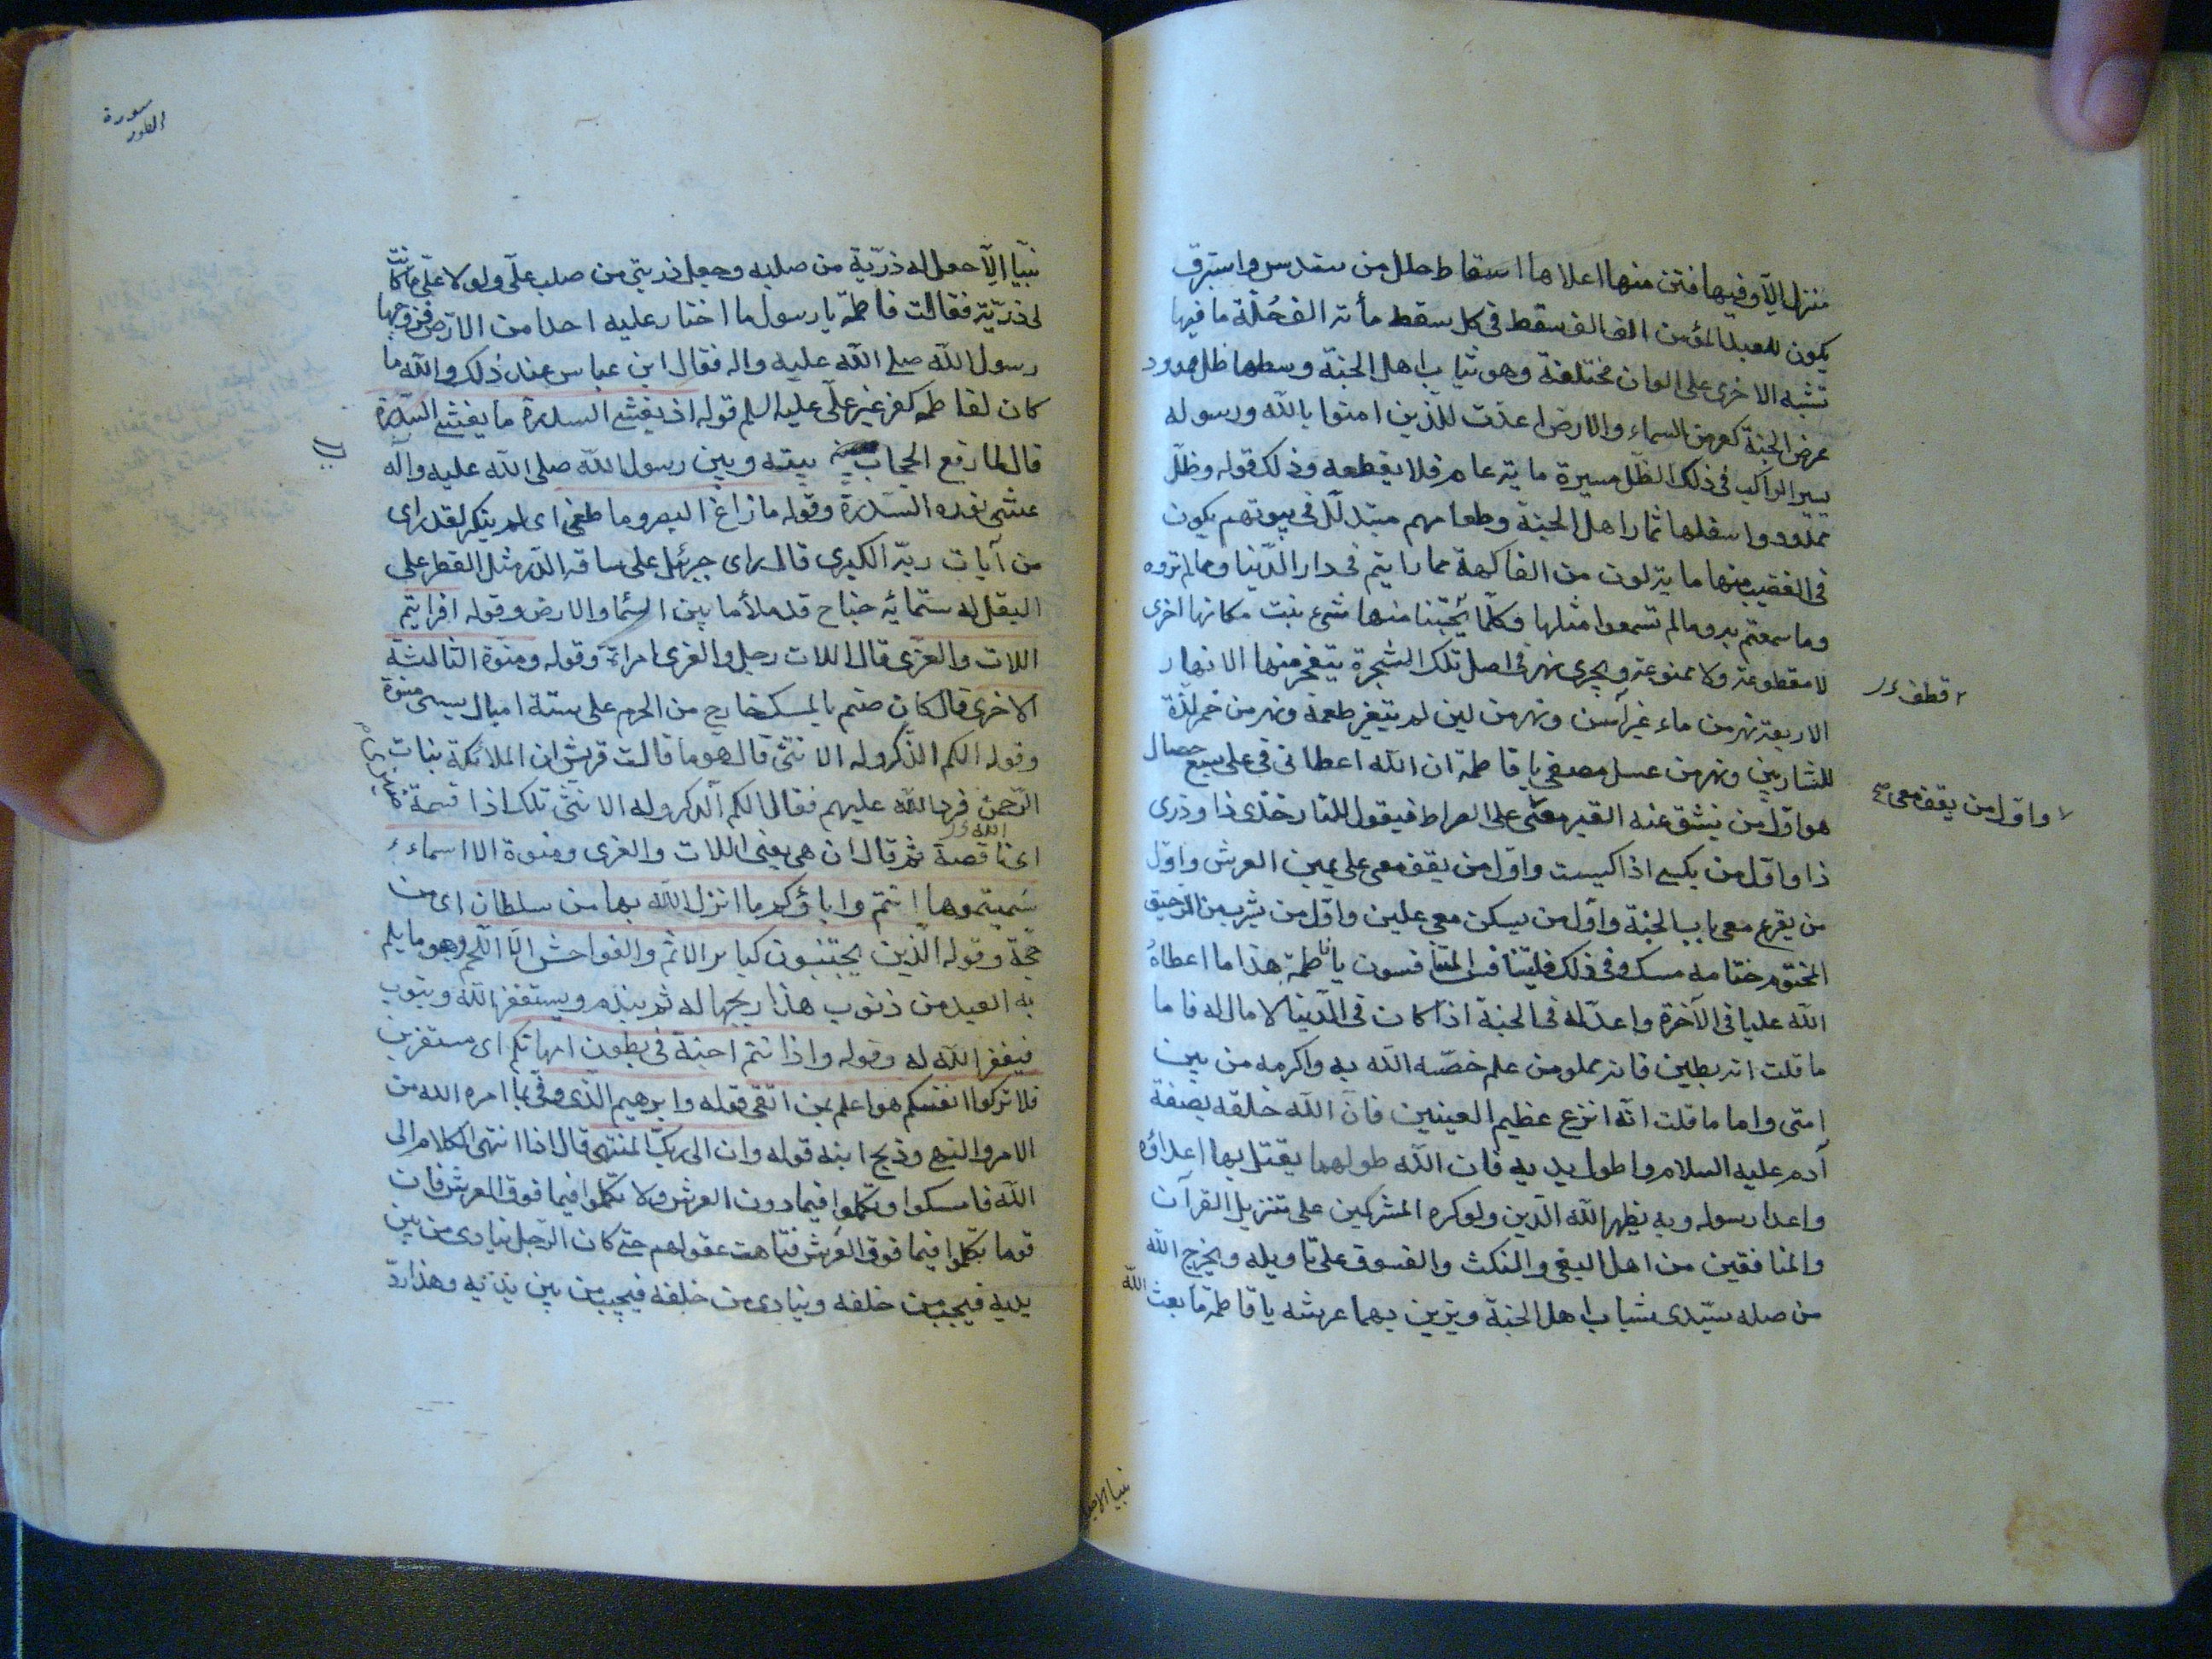 منزل الا وفيها فتن منها اعلاها اسقاط حلل من سندس واستبرق
يكون للعبد المؤمن الف الف سقط فى كل سقط مأته الف حُلّة ما فيها
تشبه الاخرى على الوان مختلفة وهو ثياب اهل الجنة وسطها ظل ممدود
عرض الجنة كعرض السماء والارض اعدّت للذين امنوا بالله ورسوله
يسير الراكب فى ذلك الظّل مسيرة ماية عام فلا يقطعه وذلك قوله وظلّ
ممدود واسفلها ثمار اهل الجنة وطعامهم متدلّل فى بيوتهم يكون
فى القضيب منها ماية لون من الفاكهة مما رايتم فى دار الدّنيا ومما لم تروه
وما سمعتم به وما لم تسمعوا مثلها وكلّما يجتنا منها شىء نبت مكانها اخرى
لا مقطوعة ولا ممنوعة ويجرى نهر فى اصل تلك الشجرة يتفجر منها الانهار
الاربعة نهر من ماء غير آسن ونهر من لبن لم يتغير طعمه ونهر من خمر لذّة
للشاربين ونهر من عسل مصفى يا فاطمة ان الله اعطانى فى على سبع خصال
هو اوّل من ينشق عنه القبر معى على الصراط فيقول للنار خذى ذا وذرى
ذا واوّل من يكسى اذا كسيت واوّل من يقف معى على يمين العرش واوّل
من يقرع معى باب الجنة واوّل من يسكن معى عليين واوّل من يشرب من الرحيق
المختوم ختامه مسك وفى ذلك فليتنافس المتنافسون يا فاطمة هذا ما اعطاهُ
الله عليا فى الآخرة واعدّ له فى الجنة اذا كان فى الدّنيا لا مال له فاما
ما قلت انه بطين فانه مملو من علم خصّه الله به واكرمه من بين
امتى واما ما قلت انّه انزع عظيم العينين فانّ الله خلقه بصفة
آدم عليه السلام واطول يديه فان الله طولهما يقتل بها اعداؤه
واعدا رسوله وبه يظهر الله الدّين ولو كره المشركين على تنزيل القرآن
والمنافقين من اهل البغى والنكث والفسوق على تاويله ويخرج الله
من صلبه سيّدى شباب اهل الجنة ويزين بهما عرشه يا فاطمة ما بعث الله
٢ قطف
واوّل من يقف معى
نبيا الا جعل
سورة
الطور
نبيّا الّا جعل له ذرّية من صلبه وجعل ذريتى من صلب علّى ولولا علّى ما كانت
لى ذرّيّة فقالت فاطمة يا رسول ما اختار عليه احدا من الارض فزوجها
رسول الله صلى الله عليه واله فقال ابن عباس عند ذلك والله ما
كان لفاطمه كفو غير علّى عليه السلم قوله اذ يغشى السدرة ما يغشى السدرة
قال لما رفع الحجاب بينه وبين رسول الله صلى الله عليه وآله
غشى نوره السّدرة وقوله ما زاغ البصر وما طغى اى لم ينكر لقد راى
من آيات ربّه الكبرى قال راى جبرئيل على ساقه الدّر مثل القطر على
البقل له ستمائه جناح قد ملأ ما بين السّماء والارض وقوله افرايتم
اللات والعزّى قال اللات رجل والعزى امراة وقوله ومنوة الثالثة
الاخرى قال كان صنم بالمسك خارج من الحرم على ستة اميال يسمى منوة
وقوله الكم الذّكر وله الانثى قال هو ما قالت قريش ان الملائكة بنات
الرّحمن فرد الله عليهم فقال الكم الذّكر وله الانثى تلك اذا قسمة ضيزى
اى ناقصة ثم قال ان هى يعنى اللات والعزى ومنوة الا اسماء
سَميتموها انتم واباؤكم ما انزل الله بها من سلطان اى من
حجّة وقوله الّذين يجتنبون كباير الاثم والفواحش الّا اللّمم وهو ما يلم
به العبد من ذنوب هذا بجهاله ثم يندم ويستغفر الله ويتوب
فيغفر الله له وقوله واذ انتم اجنة فى بطون امهاتكم اى مستقرين
فلا تزكوا انفسكم هو اعلم بمن اتقى قوله وابرهيم الّذى وفّى بما امره الله من
الامر والنهى وذبح ابنه قوله وان الى ربّك المنتهى قال اذا انتهى الكلام الى
الله فامسكوا وتكلّموا فيما دون العرش ولا تكلّموا فيما فوق العرش فان
قوما تكلّموا فيما فوق العرش فتاهت عقولهم حتى كان الرّجل ينادى من بين
يديه فيجيب من خلفه وينادى من خلفه فيجيب من بين يديه وهذا ردّ